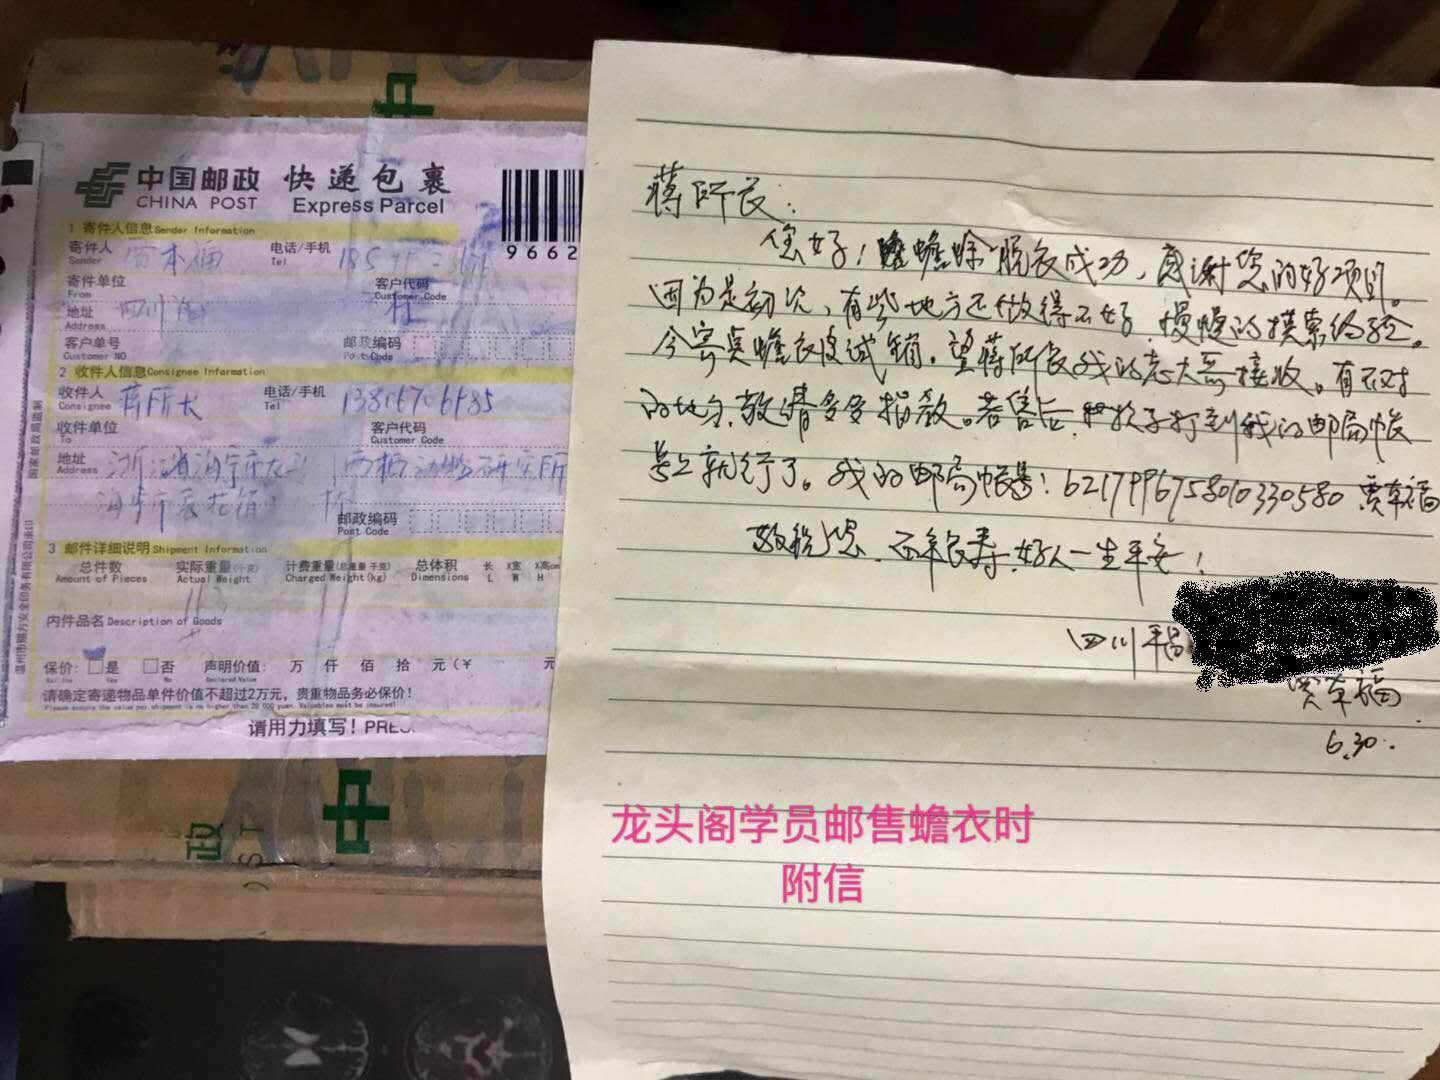 中国邮政 快递包裹
CHINA POST Express Parcel
9662
1 寄件人信息 Sender Information
寄件人 贾本福 电话/手机
Sender Tel
寄件单位 客户代码
From Customer Code
地址 四川 村
Address
客户单号 邮政编码
Customer NO Post Code
2 收件人信息 Consignee Information
收件人 蒋所长 电话/手机 13816706985
Consignee Tel
收件单位 客户代码
To Customer Code
地址 浙江省海宁市 动物研究所
Address
海宁市
邮政编码
Post Code
3 邮件详细说明 Shipment Information
总件数 实际重量(千克) 计费重量(总重量 千克) 总体积 长 X宽 X高cm
Amount of Pieces Actual Weight Charged Weight(kg) Dimensions L W H
内件品名 Description of Goods
保价: 是 否 声明价值: 万 仟 佰 拾 元(¥ 元
Yes No Declared Value
请确定寄递物品单件价值不超过2万元，贵重物品务必保价!
Please ensure the value per shipment is no higher than 20 000 yuan. Valuables must be insured!
请用力填写! PRE
国家邮政局监制
中
政
中
蒋所长:
您好! 蟾蜍脱衣成功，感谢您的好项目。
因为是初次，有些地方还做得不好，慢慢的摸索经验。
今寄点蟾衣皮试销，望蒋所长我的老大哥接收。有不对
的地方，敬请多多指教。若售后，款子打到我的邮局帐
号上就行了。我的邮局帐号: 6217996758010330580 贾本福
敬祝您 百年长寿 好人一生平安!
四川平昌
贾本福
6.30.
龙头阁学员邮售蟾衣时
附信